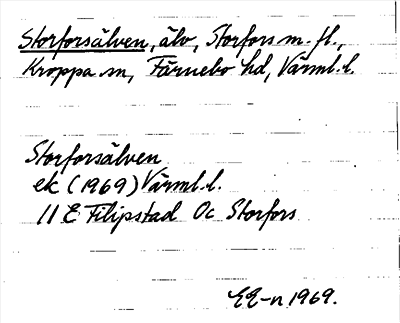 Storforsälven, älv, Storfors m. fl.,
Kroppa sn, Färnebo hd, Värml. l.
Storforsälven
ek (1969) Värml. l.
11 E Filipstad Oc Storfors
EE-n 1969.